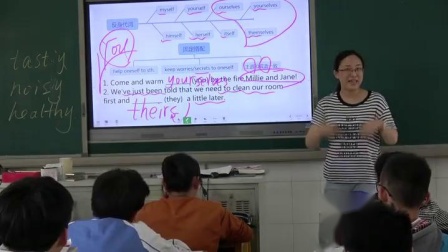 myself yourself ourselves yourselves
himself herself itself themselves
反身代词
You
help oneself to sth. keep worries/secrets to oneself
1. Come and warm your by the fire, Millie and Jane!
2. We've just been told that we need to clean our room
first and (they) a little later.
theirs
tastiy
noisly
healthy